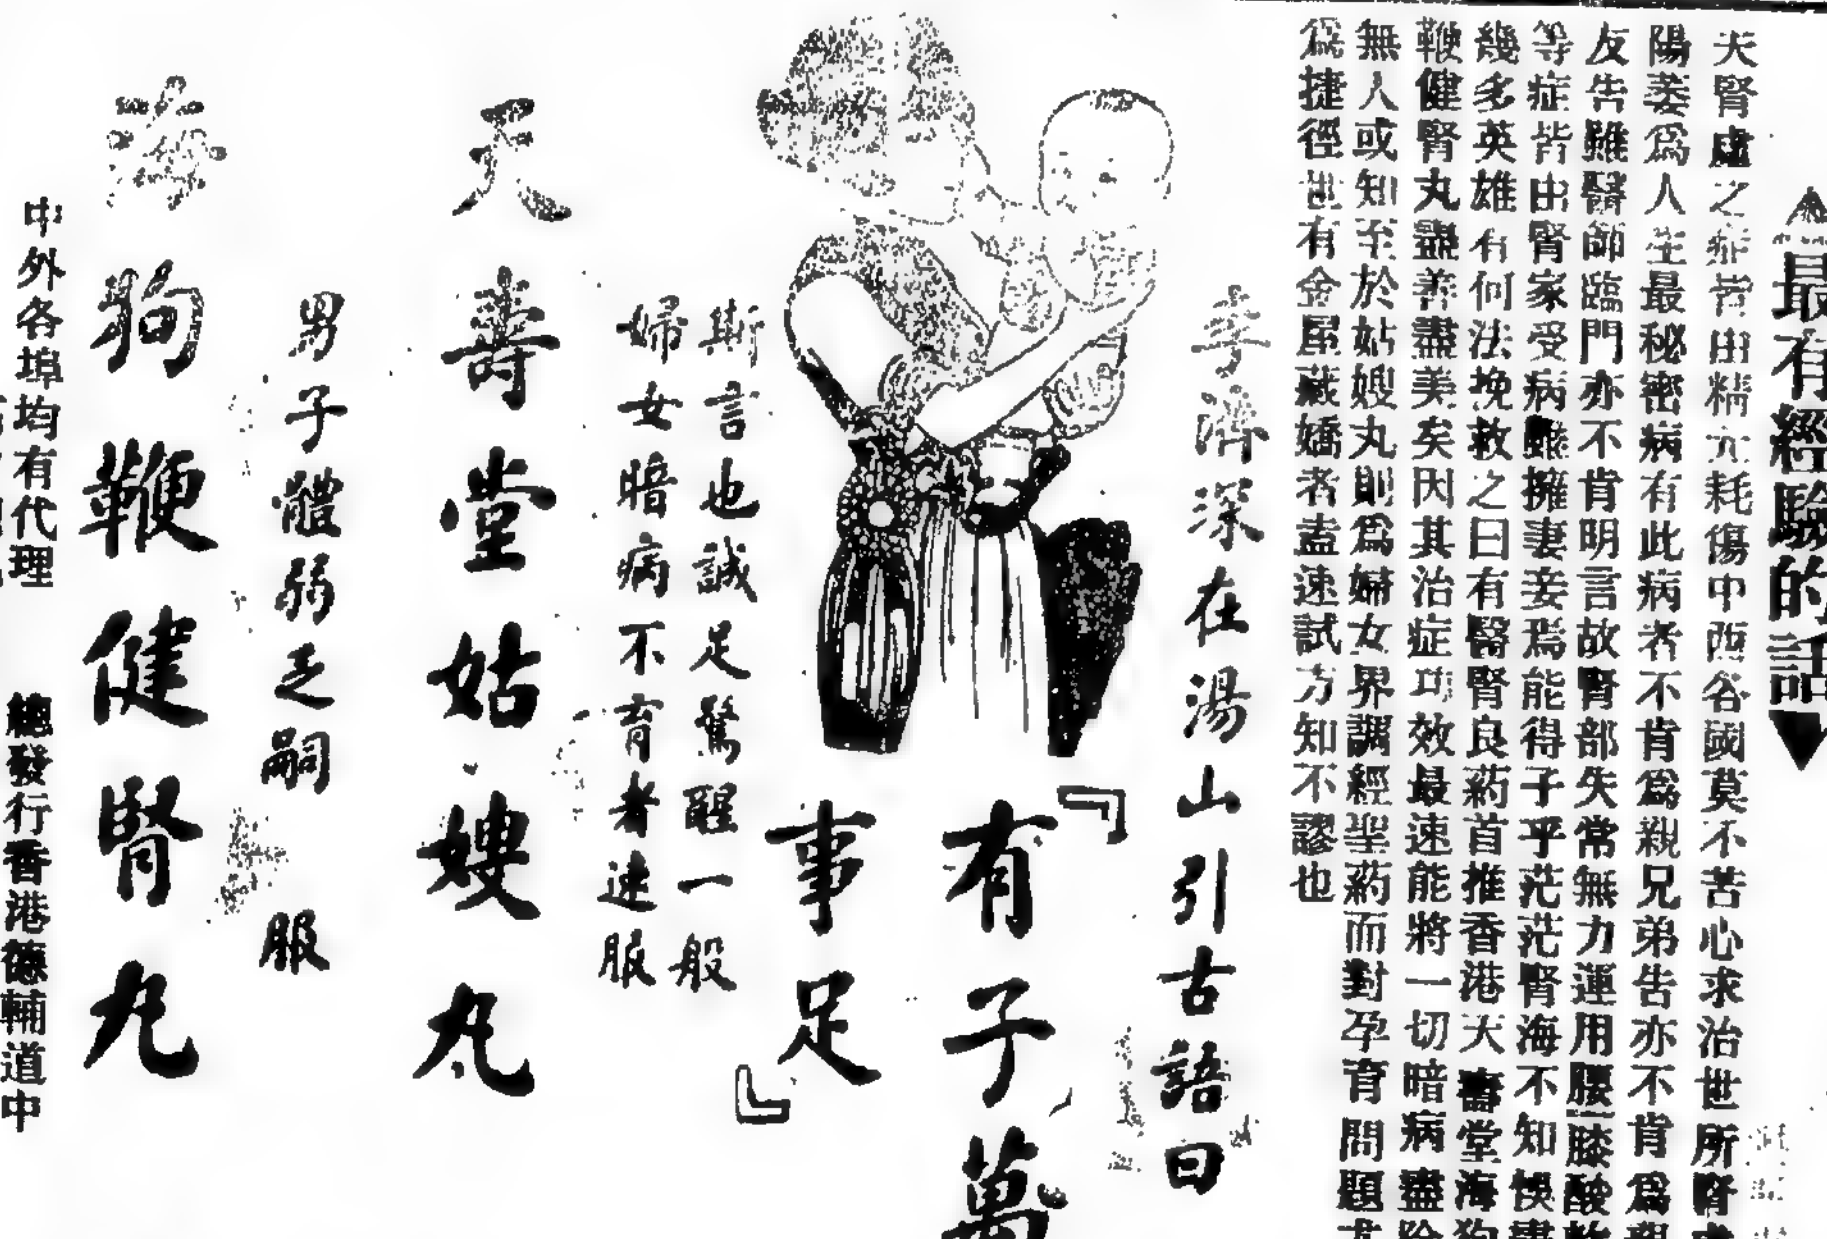 最有經驗的話
夫腎虛之症皆由精亢耗傷中西各國莫不苦心求治世所腎
陽萎爲人生最秘密病有此病者不肯爲親兄弟告亦不肯爲親
友告雖醫師臨門亦不肯明言故腎部失常無力運用腰膝酸軟
等症皆由腎家受病雖擁妻妾焉能得子乎茫茫腎海不知悞盡
幾多英雄有何法挽救之曰有醫腎良葯首推香港天壽堂海狗
鞭健腎丸盡善盡美矣因其治症功效最速能將一切暗病盡除
無人或知至於姑嫂丸則爲婦女界調經聖葯而對孕育問題尤
爲捷徑也有金屋藏嬌者盍速試方知不謬也
李濟深在湯山引古語曰
『有子萬
事足』
斯言也誠足驚醒一般
婦女暗病不育者速服
天壽堂姑嫂丸
男子體弱乏嗣 服
海狗鞭健腎丸
中外各埠均有代理 總發行香港德輔道中